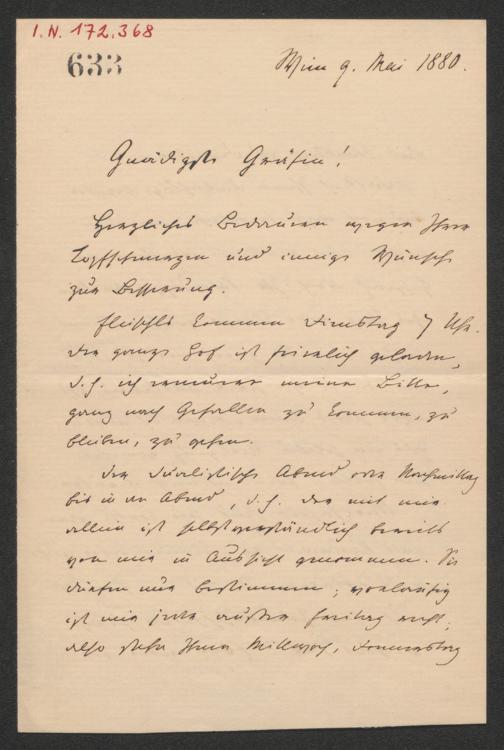 I.N. 172.368
633
Wien 9. Mai 1880.
Gnädigste Gräfin!
Herzliches Bedauern wegen Ihren
Kopfschmerzen und innige Wünsche
zur Besserung.
Fleischls kommen Dienstag 7 Uhr.
Der ganze Hof ist feierlich geladen,
d. h. ich erneuere meine Bitte,
ganz nach Gefallen zu kommen, zu
bleiben, zu gehen.
Der dualistische Abend oder Nachmittag
bis in den Abend, d. h. der mit mir
allein ist selbstverständlich bereits
von mir in Aussicht genommen. Sie
dürfen nur bestimmen; vorläufig
ist mir jeder außer Freitag recht;
also stehe Ihnen Mittwoch, Donnerstag